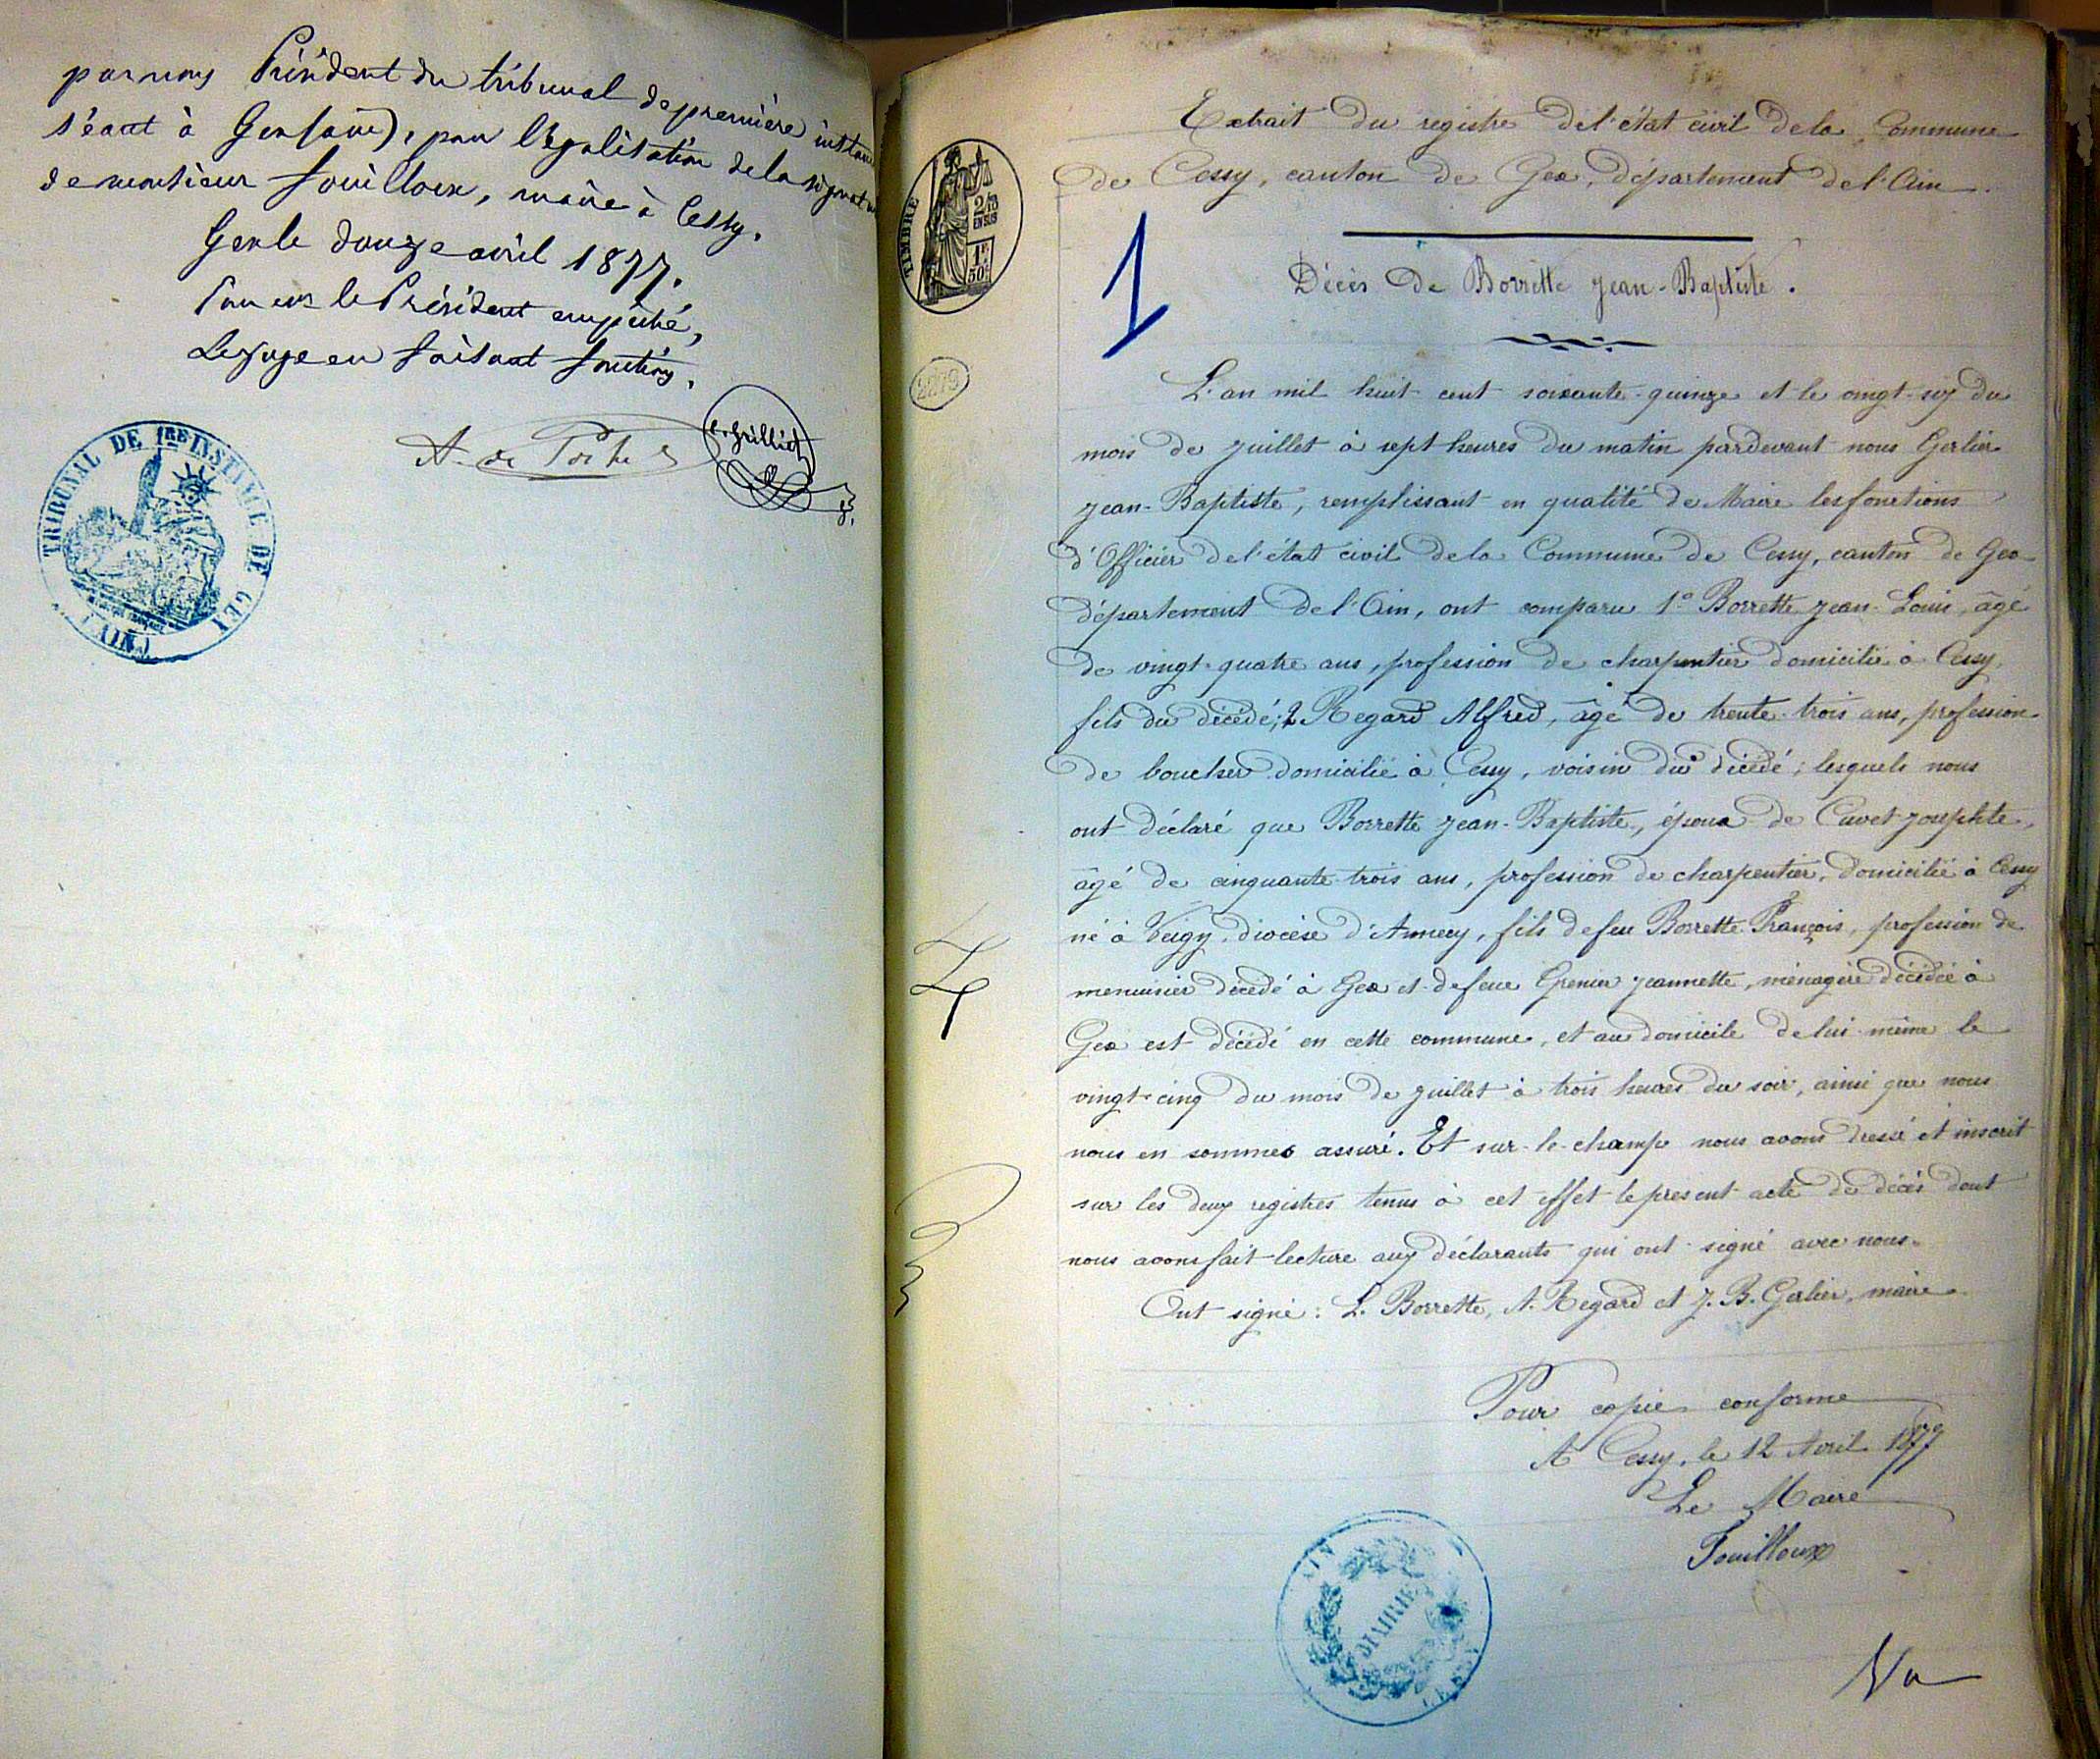 par nous Président du tribunal de première instan
séant à Gex (ain), pour légalisation de la signatu
de monsieur Fouilloux, maire à Cessy.
Gex le douze avril 1877.
Pour le Président empêché,
Le juge en faisant fonctions,
TRIBUNAL DE 1RE INSTANCE DE GEX
(AIN)
A. de
e. Grilliet
TIMBRE
2/10
EN SUS
1F
50c
2279
1
Extrait du registre de l'état civil de la Commune
de Cessy, canton de Gex, département de l'Ain.
Décès de Borrette Jean-Baptiste.
L'an mil huit cent soixante-quinze et le vingt-six du
mois de Juillet à sept heures du matin pardevant nous Gerlier
Jean-Baptiste, remplissant en qualité de Maire les fonctions
d'Officier de l'état civil de la Commune de Cessy, canton de Gex
département de l'Ain, ont comparu 1° Borrette Jean-Louis, âgé
de vingt-quatre ans, profession de charpentier domicilié à Cessy,
fils du décédé; 2° Regard Alfred, âgé de trente-trois ans, profession
de boucher domicilié à Cessy, voisin du décédé; lesquels nous
ont déclaré que Borrette Jean-Baptiste, époux de Cavet Josephte,
âgé de cinquante-trois ans, profession de charpentier, domicilié à Cessy
né à Veigy, diocèse d'Annecy, fils de feu Borrette François, profession de
menuisier décédé à Gex et de feue Grenier Jeannette, ménagère décédée à
Gex est décédé en cette commune, et au domicile de lui-même le
vingt-cinq du mois de Juillet à trois heures du soir, ainsi que nous
nous en sommes assuré. Et sur-le-champ nous avons dressé et inscrit
sur les deux registres tenus à cet effet le présent acte de décès dont
nous avons fait lecture aux déclarants qui ont signé avec nous.
Ont signé: L. Borrette, A. Regard et J. B. Gerlier, maire.
Pour copie conforme
A Cessy, le 12 Avril 1877
Le Maire
Fouilloux
AIN
MAIRIE
CESSY
Vu